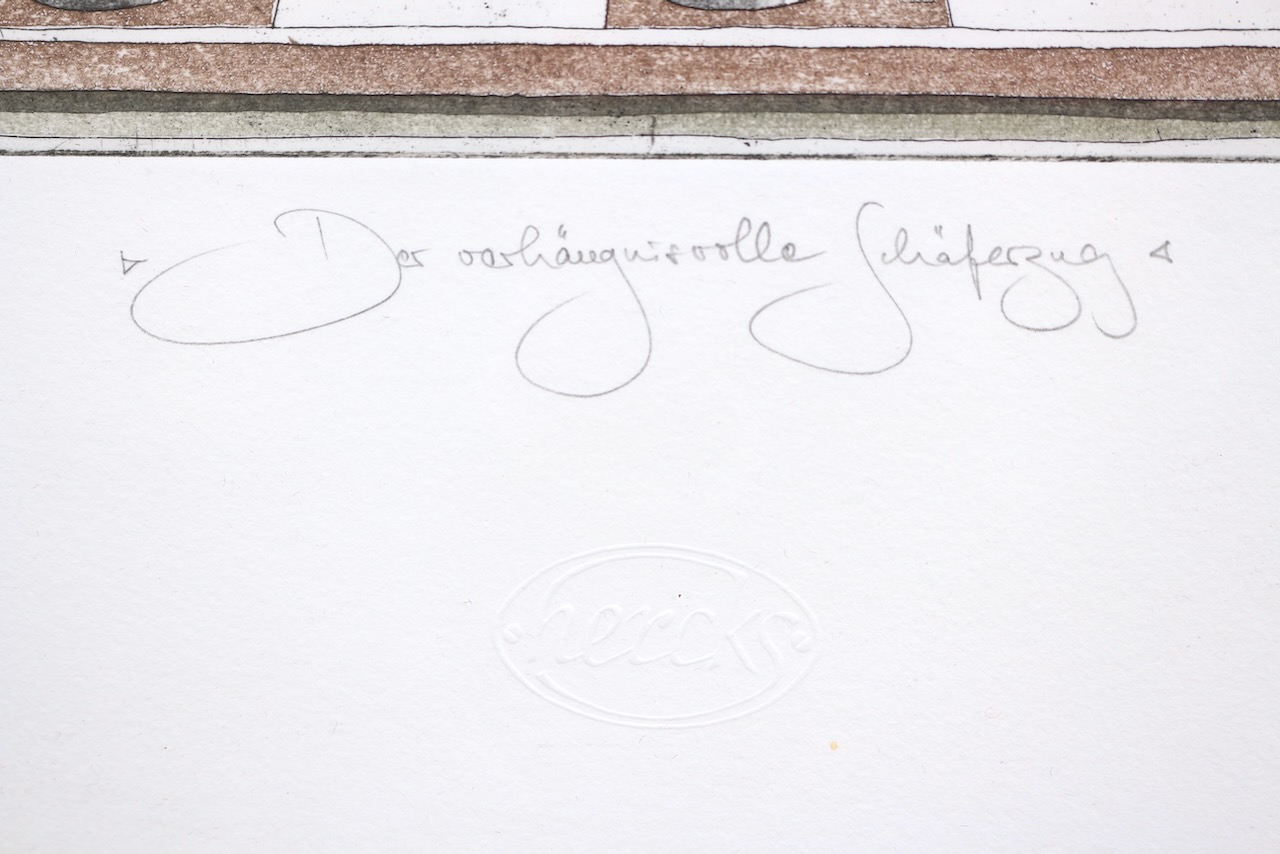 Der verhängnisvolle Schäferzug